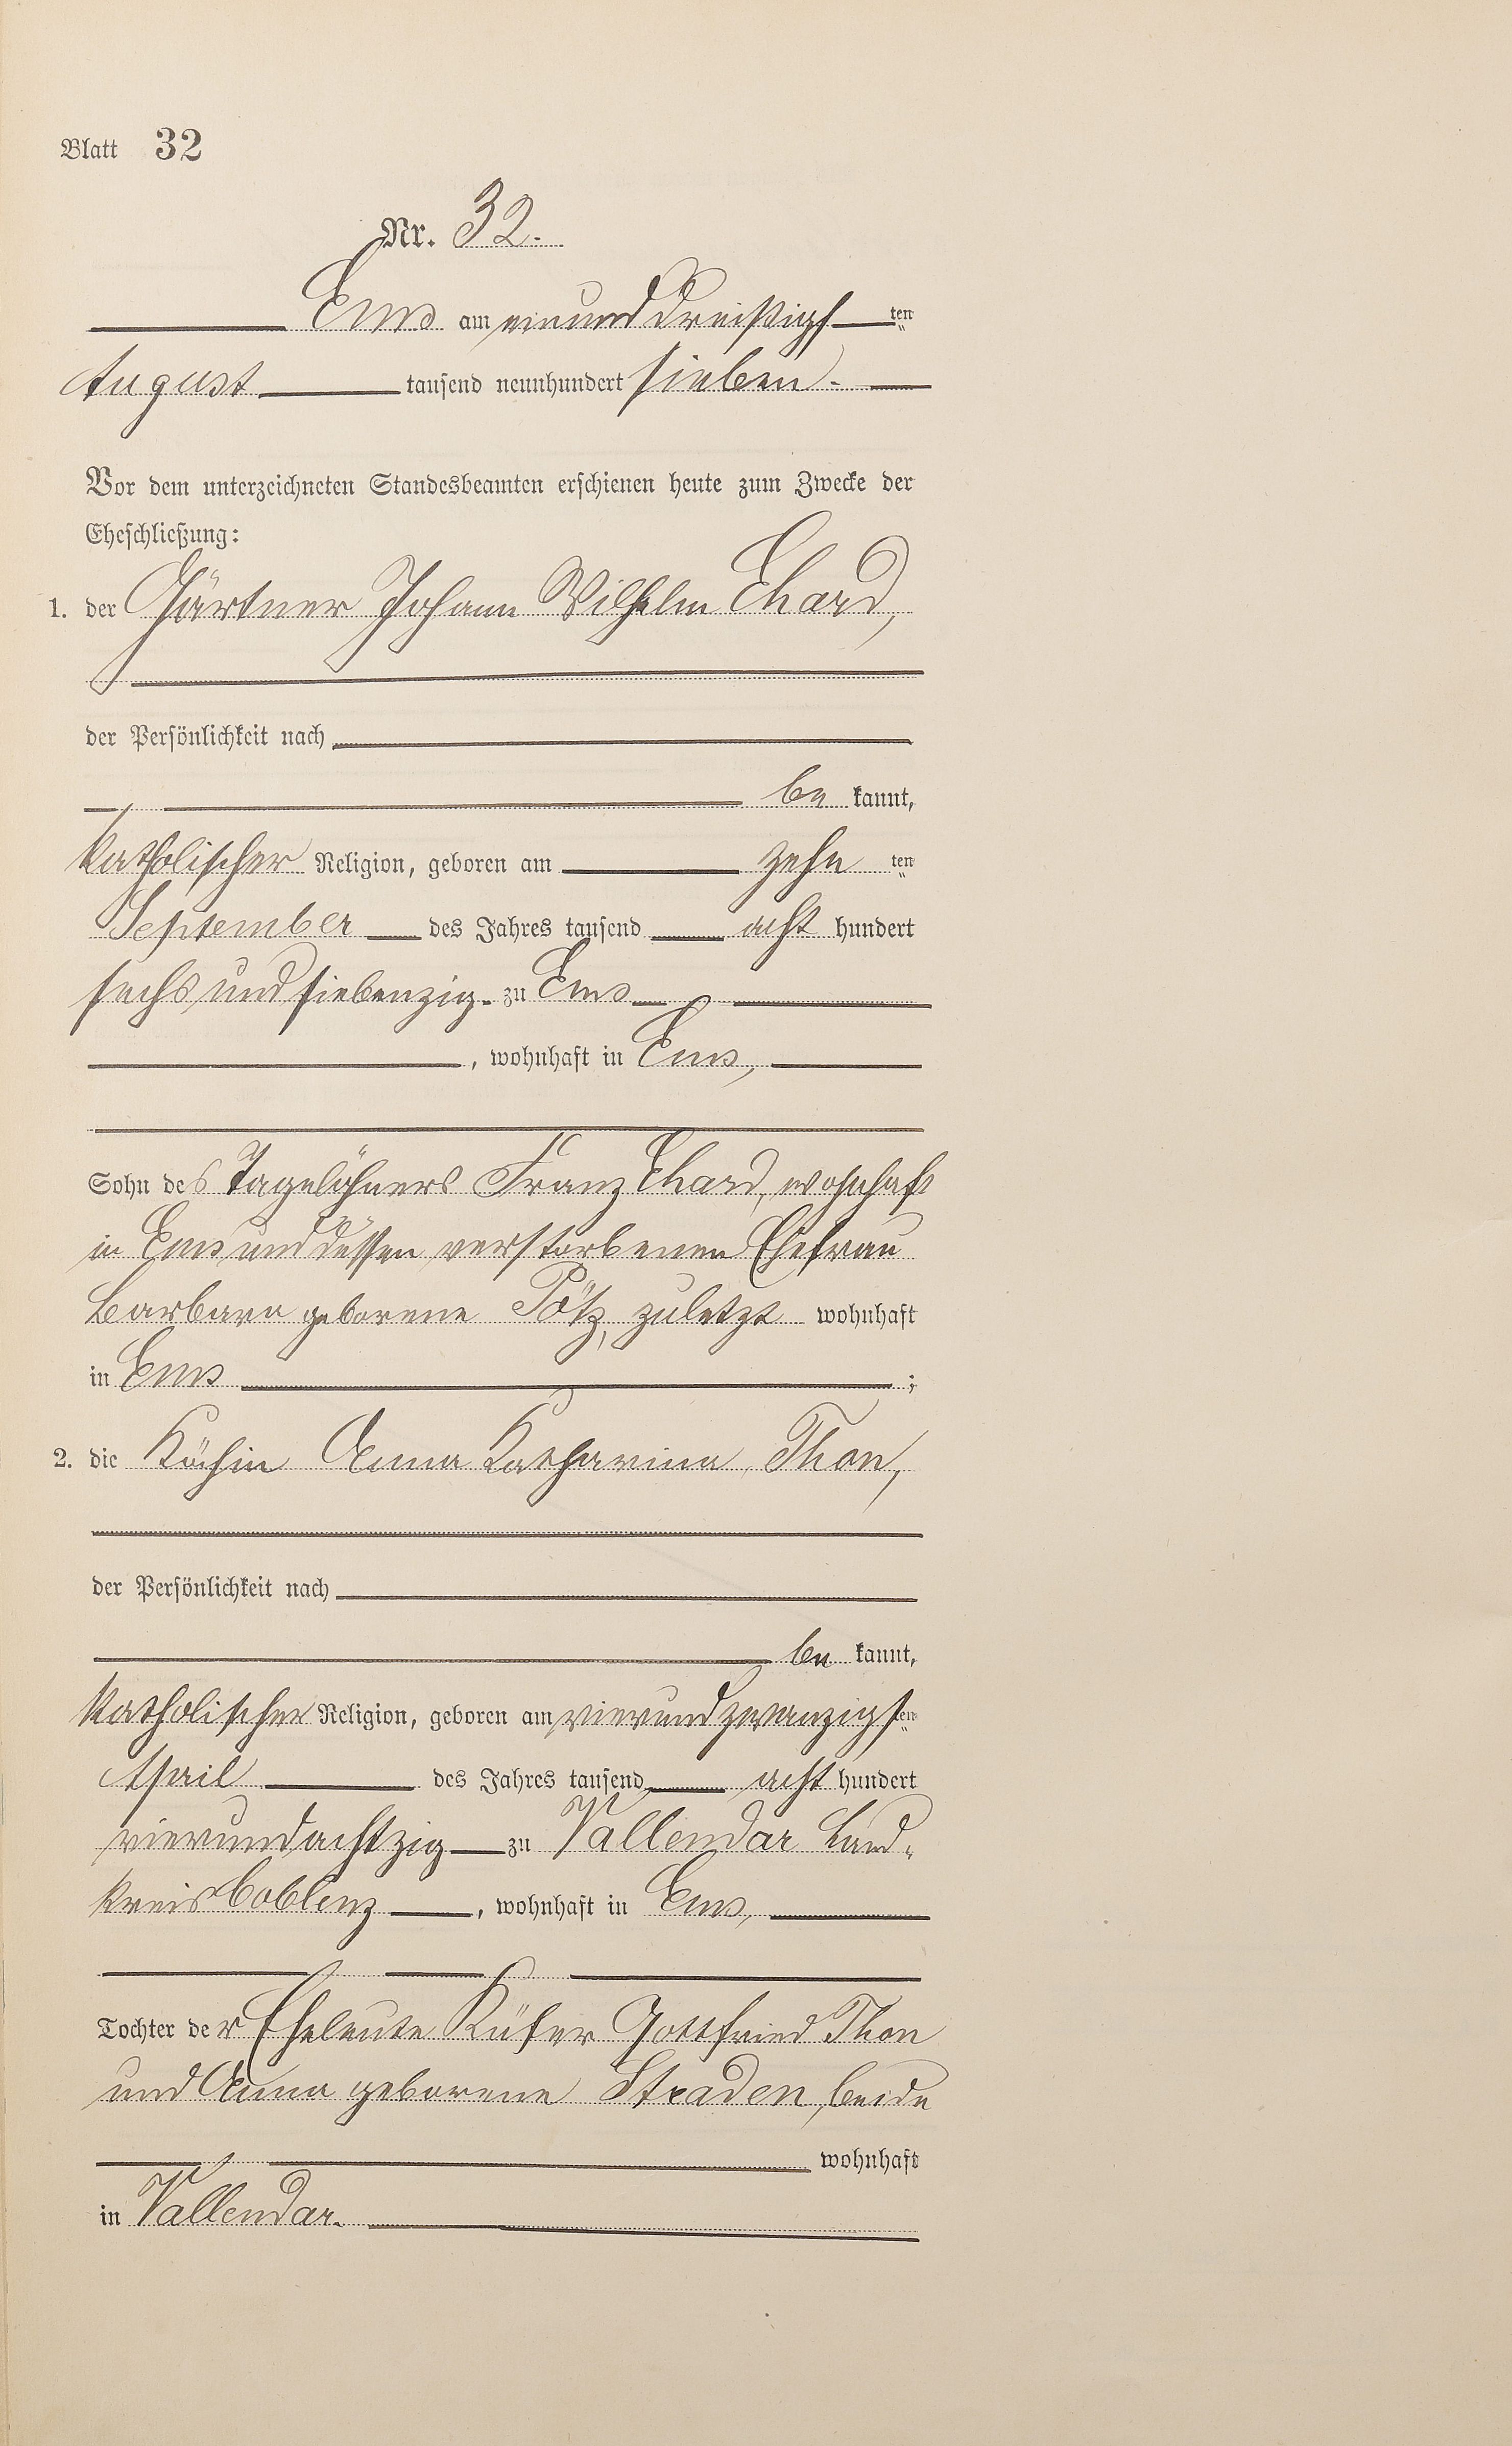 Blatt 32
Nr. 32.
Ems am einunddreißigsten
August tausend neunhundert sieben.
Vor dem unterzeichneten Standesbeamten erschienen heute zum Zwecke der
Eheschließung:
1. der Gärtner Johann Wilhelm Ehard,
der Persönlichkeit nach
bekannt,
katholischer Religion, geboren am zehnten
September des Jahres tausend acht hundert
sechs und siebenzig. zu Ems
, wohnhaft in Ems,
Sohn des Tagelöhners Franz Ehard, wohnhaft
in Ems und dessen verstorbenen Ehefrau
Barbara geborene Pötz, zuletzt wohnhaft
in Ems ;
2. die Köchin Anna Katharina Thon,
der Persönlichkeit nach
bekannt,
katholischer Religion, geboren am vierundzwanzigsten
April des Jahres tausend acht hundert
vierundachtzig zu Vallendar Land-
kreis Coblenz , wohnhaft in Ems,
Tochter der Eheleute Küfer Gottfried Thon
und Anna geborene Straden, beide
wohnhaft
in Vallendar.